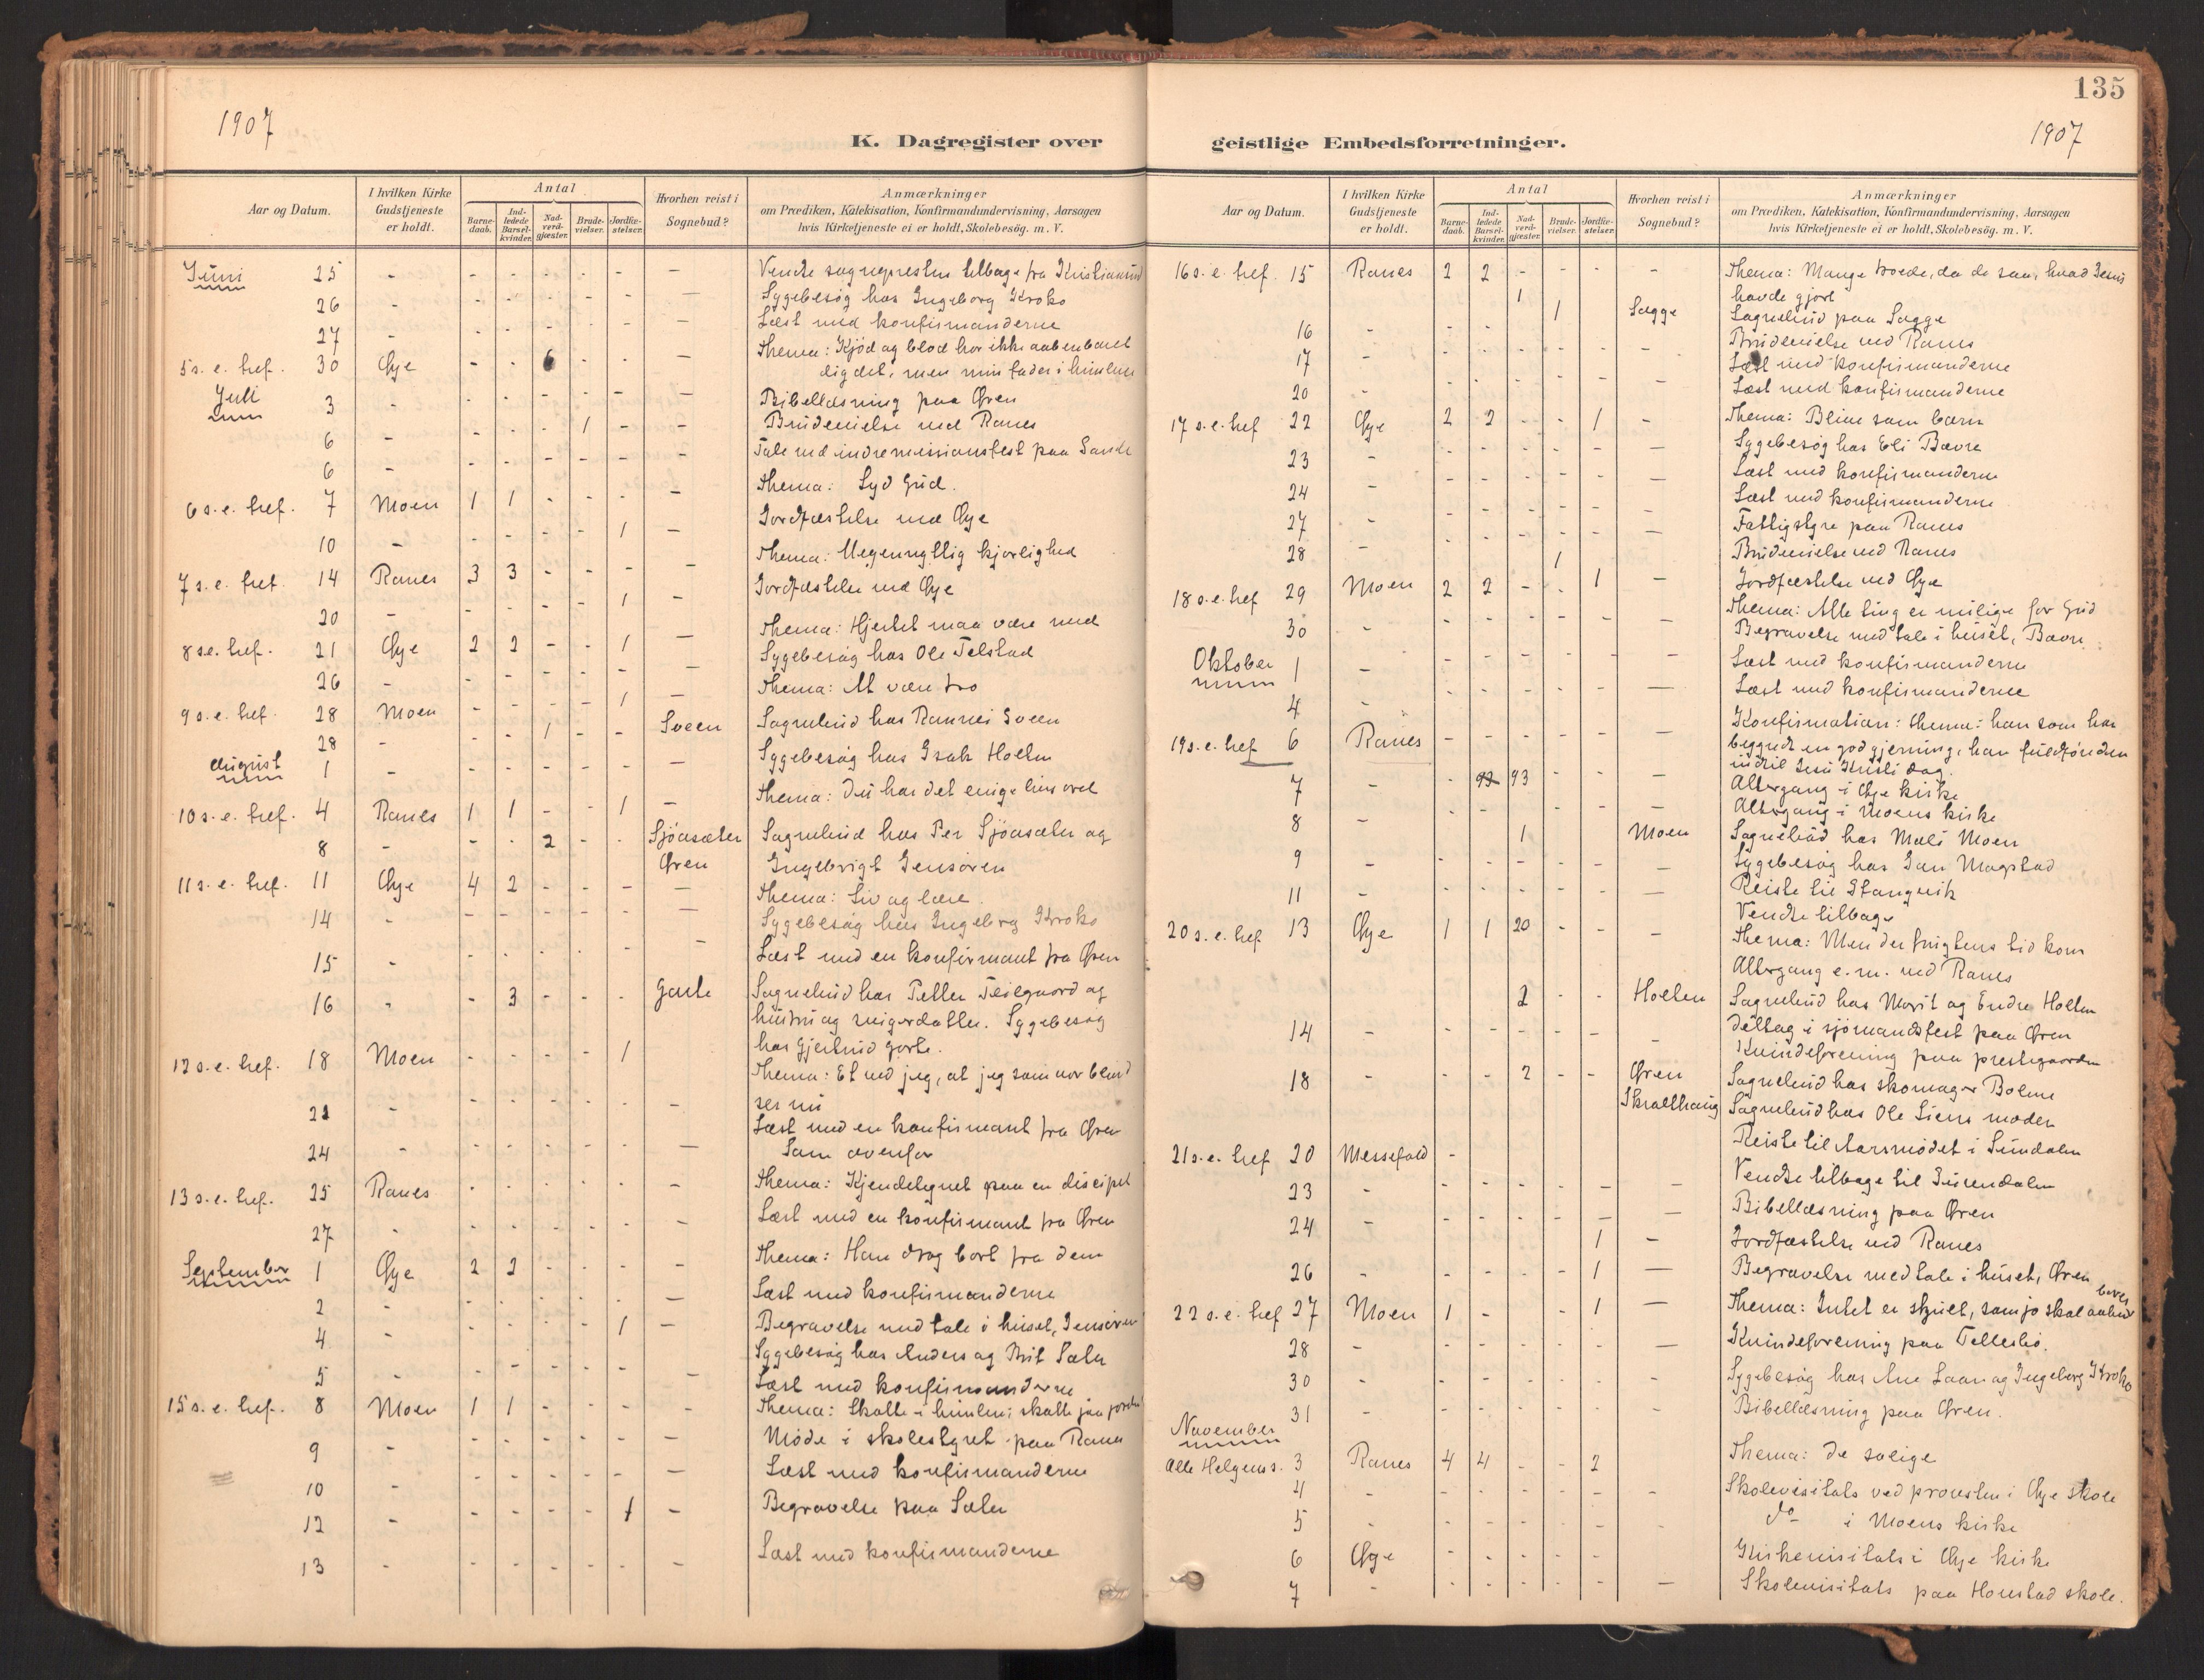 135
1907
1907
K. Dagregister over geistlige Embedsforretninger.
Aar og Datum.
I hvilken Kirke Gudstjeneste er holdt.
Antal
Barnedaab.
Indledede Barselkvinder.
Nadverdgjæster.
Brudevielser.
Jordfæstelser.
Hvorhen reist i Sognebud?
Anmærkninger
om Prædiken, Katekisation, Konfirmandundervisning, Aarsagen
hvis Kirketjeneste ei er holdt, Skolebesög. m. V.
Juni 25 - - - - - - - Vendte sognepresten tilbage fra Kristiansund
26 - - - - - - - Sygebesøg hos Ingeborg Kroko
27 - - - - - - - Læst med konfirmanderne
5 s. e. tref. 30 Øye - - 6 - - - Thema: Kjød og blod har ikke aabenbaret
dig det, men min fader i himlen
Juli 3 - - - - - - - Bibellæsning paa Øren
6 - - - - 1 - - Brudevielse ved Ranes
6 - - - - - - - Tale ved indremissionsfest paa Sande
6 s. e. tref. 7 Moen 1 1 - - - - Thema: Lyd Gud.
10 - 1 - Jordfæstelse ved Øye
7 s. e. tref. 14 Ranes 3 3 - - - - Thema: Uegennyttig kjærlighed
20 - 1 - Jordfæstelse ved Øye
8 s e. tref. 21 Øye 2 2 - - 1 - Thema: Hjertet maa være med
26 - - - - - - Sygebesøg hos Ole Telstad
9 s. e. tref. 28 Moen - - - - 1 - Thema: At være tro
28 - - - 1 - - Sveen Sognebud hos Rannei Sveen
August 1 - - - - - - - Sygebesøg hos Isak Holten
10 s. e. tref. 4 Ranes 1 1 - - 1 - Thema: Du har det evige livs ord
8 - - - 2 - - Sjøasæter Sognebud hos Per Sjøasæter og
Øren Ingebrigt Jensøren
11 s. e. tref. 11 Øye 4 2 - - - - Thema: Liv og lære.
14 - - - - - - - Sygebesøg hos Ingeborg Kroko
15 - - - - - - - Læst med en konfirmant fra Øren
16 - - 3 - - - Gaste Sognebud hos Petter Teilgaard og
hustru og svigerdatter. Sygebesøg
hos Gjertrud
12 s. e. tref. 18 Moen - - - - 1 Thema: Et ved jeg, at jeg som var blind
ser nu
21 - - - - - - - Læst med en konfirmant fra Øren
24 - - - - - - - Som ovenfor
13 s. e. tref. 25 Ranes - - - - - - Thema: Kjendetegnet paa en discipel
27 - - - - - - - Læst med en konfirmant fra Øren
September 1 Øye 2 2 - - - - Thema: Han drog bort fra dem
2 - - - - - - - Læst med konfirmanderne
4 - - - - - 1 - Begravelse med tale i huset, Jensøren
5 - - - - - - - Sygebesøg hos Anders og Brit Sæter
Læst med konfirmanderne
15 s. e. tref. 8 Moen 1 1 - - - - Thema: Skatte i himlen, skatte paa jorden
9 - - - - - - - Møde i skolestyret paa Ranes
10 - - - - - - - Læst med konfirmanderne
12 - - - - - 1 - Begravelse paa Sæter
13 - - - - - - - Læst med konfirmanderne
16 s. e. tref. 15 Ranes 2 2 - - - - Thema: Mange troede, da de saa, hvad Jesus
havde gjort
16 - - - 1 1 Sagge Sognebud paa Sagge
Brudevielse ved Ranes
17 - - - - - - - Læst med konfirmanderne
20 - - - - - - - Læst med konfirmanderne
17 s. e. tref 22 Øye 2 2 - - 1 - Thema: Blive som børn
23 - - - - - - - Sygebesøg hos Eli Bævre
24 - - - - - - - Læst med konfirmanderne
Læst med konfirmanderne
27 - - - - - - - Fattigstyre paa Ranes
28 - 1 Brudevielse ved Ranes
18 s. e. tref 29 Moen 2 2 - - 1 - Jordfæstelse ved Øye
Thema: Alle ting er mulige for Gud
30 - - - - - - - Begravelse med tale i huset, Bævre
Oktober 1 - - - - - - - Læst med konfirmanderne
4 - - - - - - - Læst med konfirmanderne
19 s. e. tref 6 Ranes - - - - - - Konfirmation: thema: han som har
begyndt en god gjerning, han fuldføre den
indtil Jesu Kristi dag.
7 - - 93 93 - Altergang i Øye kirke
8 - - - - - - Altergang i Moens kirke
1 Moen Sognebud hos Mali Moen
9 - - - - - - - Sygebesøg hos Jan Mogstad
11 - - - - - - - Reiste til Stangvik
Vendte tilbage
20 s. e. tref 13 Øye 1 1 20 - - - Thema: Men der frugtens tid kom
Altergang e. m. ved Ranes
2 - - Holten Sognebud hos Marit og Endre Holten
14 - - - - - - - Deltog i sjømandsfest paa Øren
Kvindeforening paa prestegaarden
18 - - - 2 - - Øren Sognebud hos skomager Bolme
Skralthaug Sognebud hos Ole Liens moder
Reiste til Aarsmødet i Sundalen
21 s. e. tref 20 Messefald -
23 - - - - - - - Vendte tilbage til Surendalen
24 - - - - - - - Bibellæsning paa Øren
1 - Jordfæstelse ved Ranes
26 - - - - - 1 - Begravelse med tale i huset, Øren
22 s. e. tref 27 Moen 1 - - 1 - Thema: Intet er skjult, som jo skal aabenbares
28 - - - - - - - Kvindeforening paa Tellesbø.
30 - - - - - - - Sygebesøg hos Ane Laan og Ingeborg Kroko
31 - - - - - - - Bibellæsning paa Øren.
November
Alle Helgens. 3 Ranes 4 4 - - 2 Thema: De salige
4 - - - - - - - Skolevisitats ved provsten i Øye skole
5 - - - - - - - do i Moens kirke
6 Øye - - - - Kirkevisitats i Øye kirke
7 - - - - - - - Skolevisitats paa Honstad skole.